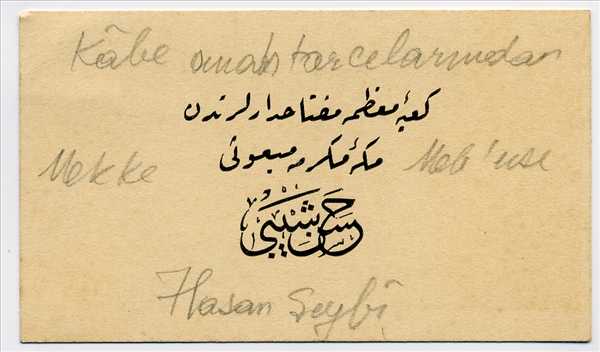 Kâbe anahtarcelarından
كعبۀ معظمه مفتاحدارلرندن
Mekke مكۀ مكرمه مبعوثی Meb'usu
حسن شیبی
Hasan Şeybî